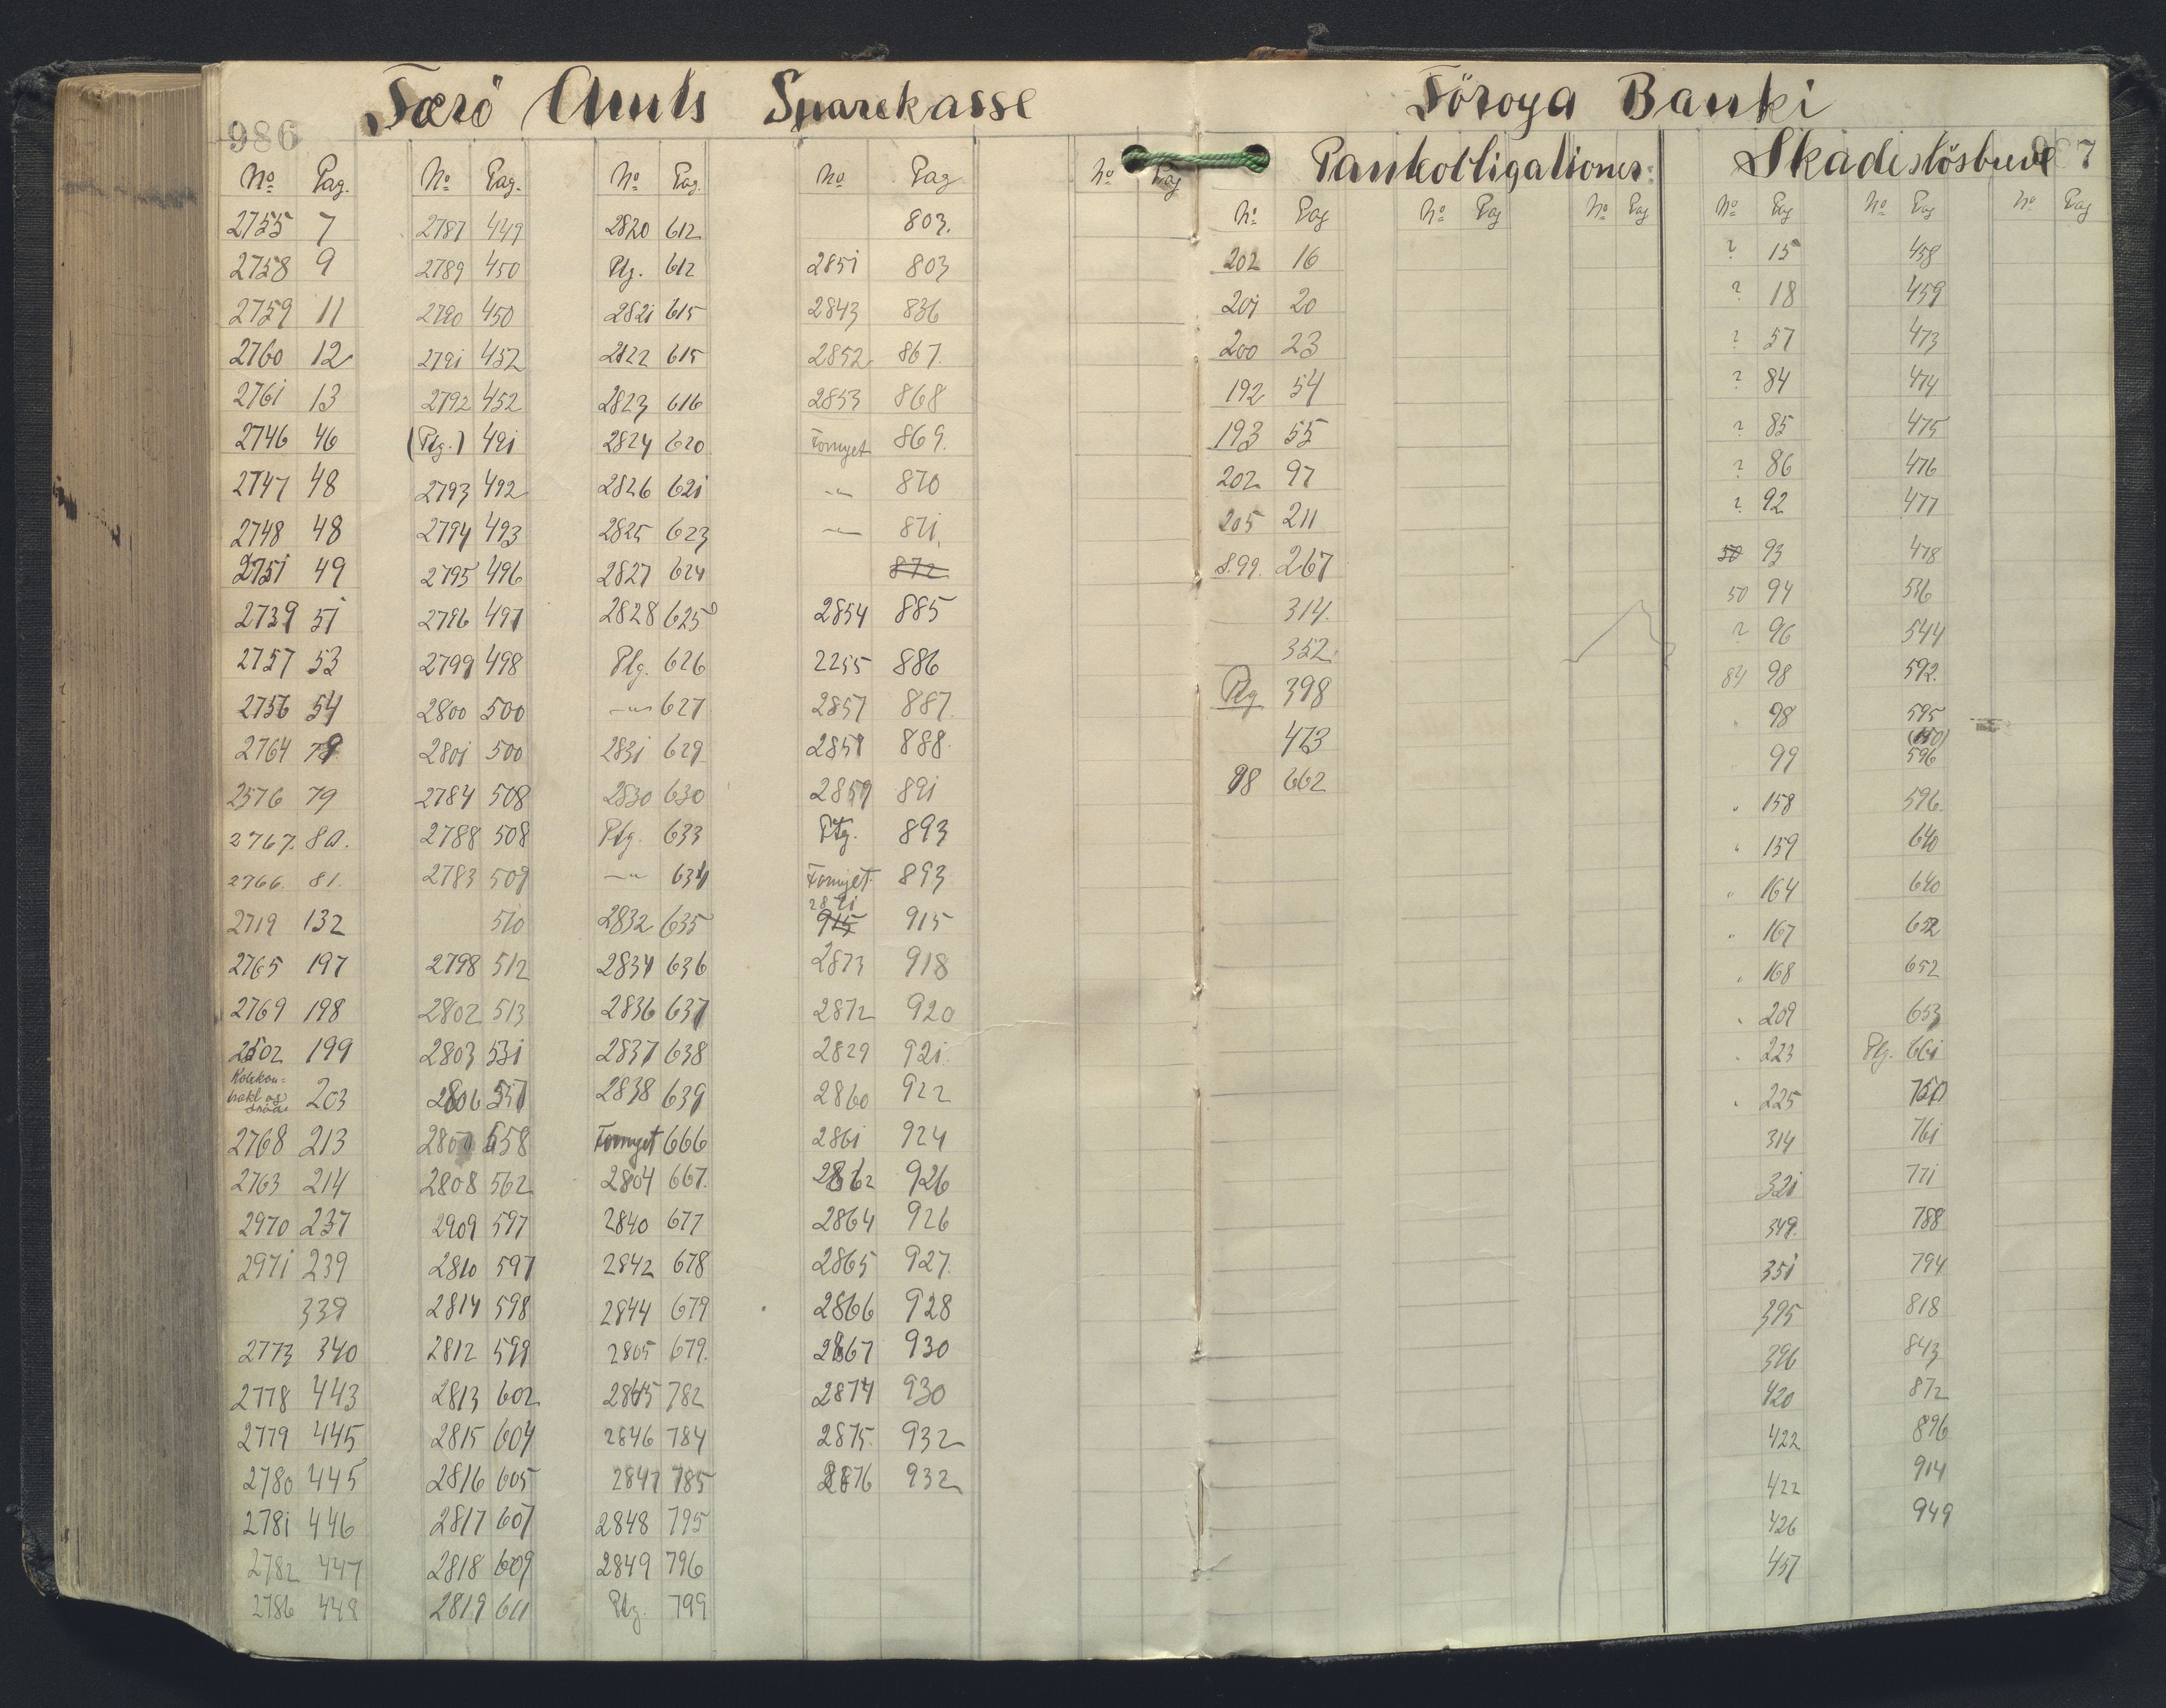 986
Færö Amts Sparekasse
Nº Pag. Nº Pag. Nº Pag. Nº Pag Nº Pag
2755 7 2787 449 2820 612 803.
2758 9 2789 450 Ptg. 612 2851 803
2759 11 2790 450 2821 615 2843 836
2760 12 2791 452 2822 615 2852 867.
2761 13 2792 452 2823 616 2853 868
2746 46 (Ptg.) 491 2824 620 Fornyet 869.
2747 48 2793 492 2826 621 -"- 870
2748 48 2794 493 2825 623 -"- 871.
2751 49 2795 496 2827 624 872
2739 51 2796 497 2828 625 2854 885
2757 53 2799 498 Ptg. 626 2255 886
2756 54 2800 500 -"- 627 2857 887.
2764 79 2801 500 2831 629 2858 888.
2576 79 2784 508 2830 630 2859 891
2767. 80. 2788 508 Ptg. 633 Ptg. 893
2766. 81. 2783 509 -"- 634 Fornyet 893
2719 132 510 2832 635 915 915
2765 197 2798 512 2834 636 2873 918
2769 198 2802 513 2836 637 2872 920
2502 199 2803 531 2837 638 2829 921.
203 2806 557 2838 639 2860 922
2768 213 2807 558 Fornyet 666 2861 924
2763 214 2808 562 2804 667. 2862 926
2970 237 2909 597 2840 677 2864 926
2971 239 2810 597 2842 678 2865 927.
339 2814 598 2844 679 2866 928
2773 340 2812 599 2805 679. 2867 930
2778 443 2813 602 2845 782 2874 930
2779 445 2815 604 2846 784 2875. 932
2780 445 2816 605 2847 785 2876 932
2781 446 2817 607 2848 795
2782 447 2818 609 2849 796
2786 448 2819 611 Ptg. 799
Föroya Banki
Pantobligationer: Skadeslösbreve 987
Nº Pag Nº Pag Nº Pag Nº Pag Nº Pag Nº Pag
202 16 ? 15 458
201 20 ? 18 459
200 23 ? 57 473
192 54 ? 84 474
193 55 ? 85 475
202 97 ? 86 476
205 211 ? 92 477
S.99. 267 50 93 478
314. 50 94 536
352. ? 96 544
Ptg 398 84 98 592.
473 " 98 595
98 662 " 99 596
" 158 596.
" 159 640
" 164 640
" 167 652
" 168 652
" 209 653
" 223 Ptg. 661
" 225 750
314 761
321 771
349. 788
351 794
395 818
396 843
420 872
422 896
422 914
426 949
457